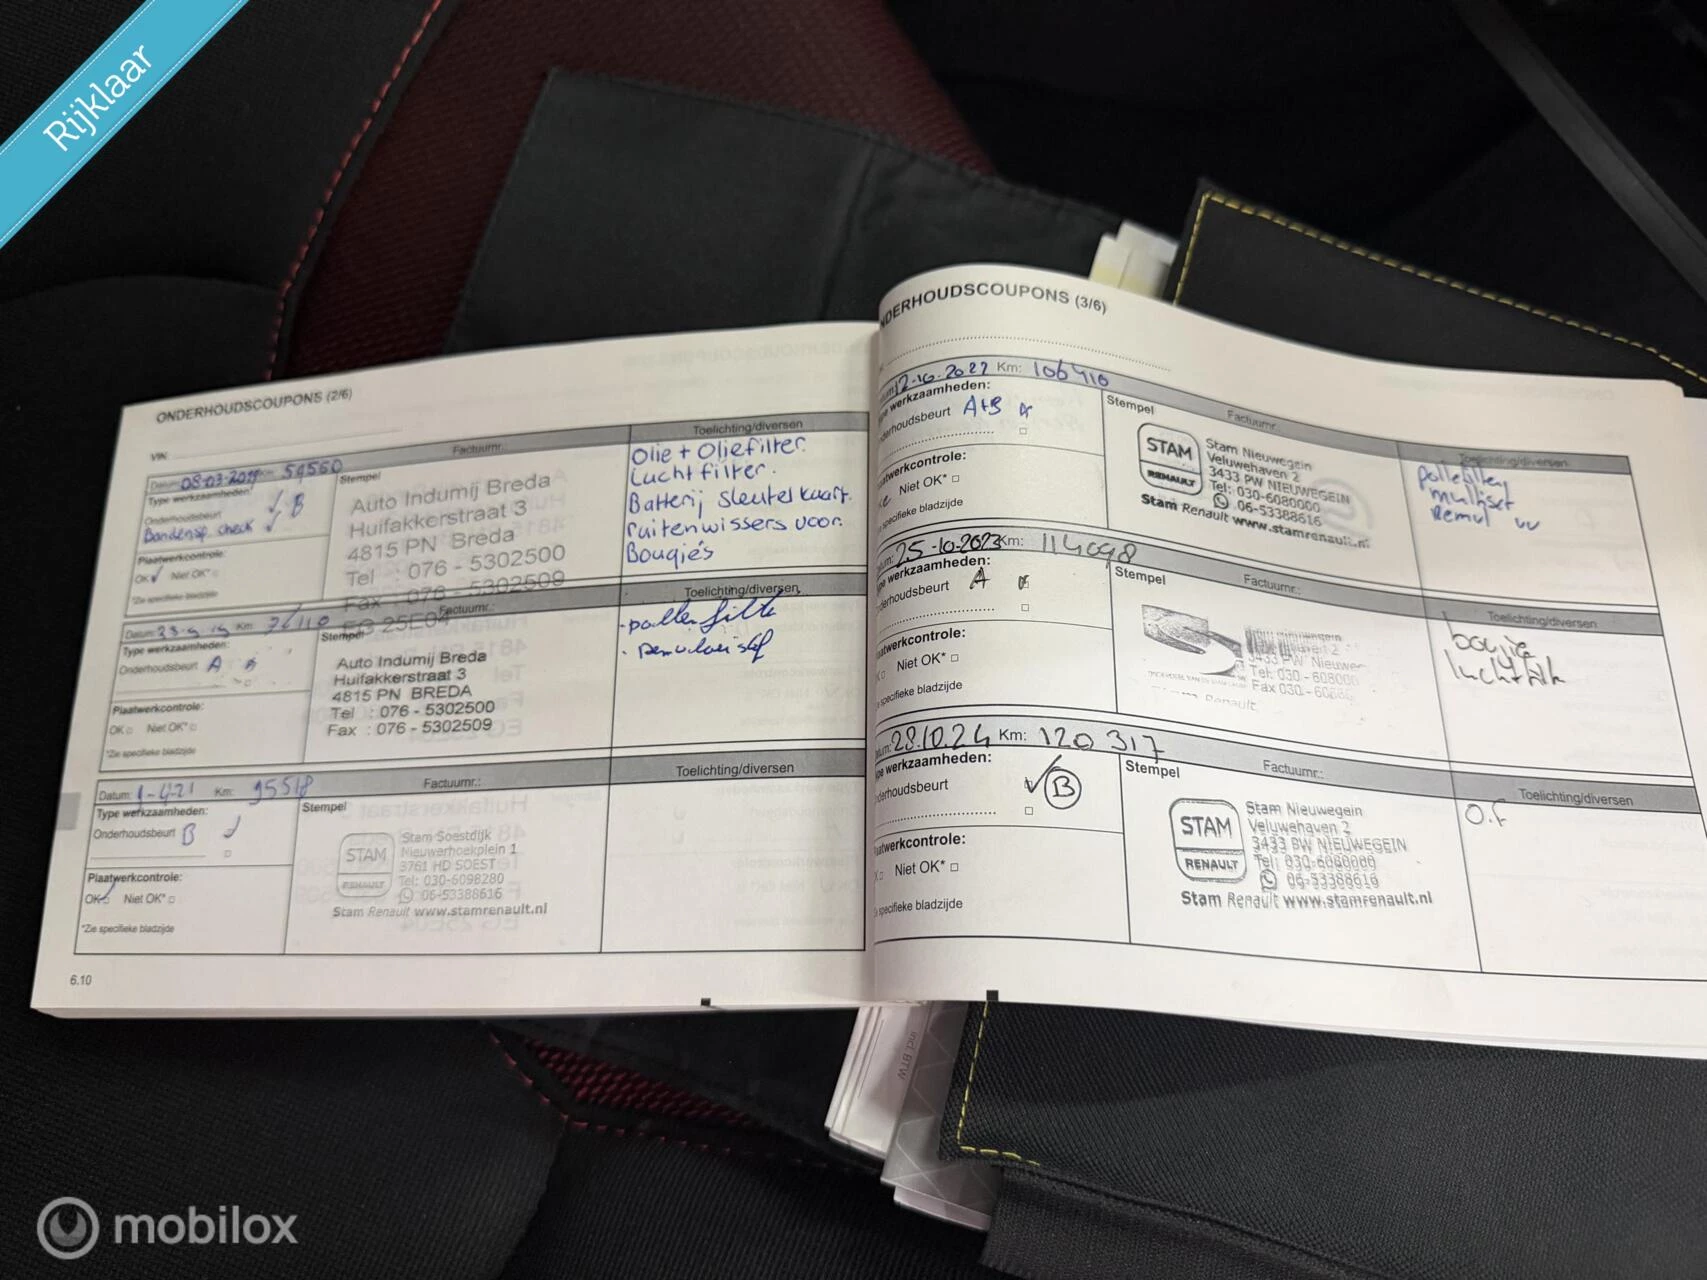 Rijklaar
ONDERHOUDSCOUPONS (2/6)
VIN:
Datum: 08-03-2019 Km: 54560
Factuurnr.:
Toelichting/diversen
Type werkzaamheden:
Onderhoudsbeurt B
Bandensp. check
Plaatwerkcontrole:
OK Niet OK*
*Zie specifieke bladzijde
Stempel
Auto Indumij Breda
Huifakkerstraat 3
4815 PN Breda
Tel : 076 - 5302500
Fax : 076 - 5302509
EG 25E04
Olie + Oliefilter.
Luchtfilter.
Batterij sleutelkaart.
ruitenwissers voor.
Bougie's
Datum: Km:
Factuurnr.:
Toelichting/diversen
Type werkzaamheden:
Onderhoudsbeurt A
Plaatwerkcontrole:
OK Niet OK*
*Zie specifieke bladzijde
Stempel
Auto Indumij Breda
Huifakkerstraat 3
4815 PN BREDA
Tel : 076 - 5302500
Fax : 076 - 5302509
Datum: 1-4-21 Km: 95518
Factuurnr.:
Toelichting/diversen
Type werkzaamheden:
Onderhoudsbeurt B
Plaatwerkcontrole:
OK Niet OK*
*Zie specifieke bladzijde
Stempel
STAM
RENAULT
Stam Soestdijk
Nieuwerhoekplein 1
3761 HD SOEST
Tel: 030-6098280
06-53388616
Stam Renault www.stamrenault.nl
6.10
NDERHOUDSCOUPONS (3/6)
12-10-2022 Km: 106410
Factuurnr.
Toelichting/diversen
werkzaamheden:
nderhoudsbeurt A+B
aatwerkcontrole:
Niet OK*
e specifieke bladzijde
Stempel
STAM
RENAULT
Stam Nieuwegein
Veluwehaven 2
3433 PW NIEUWEGEIN
Tel: 030-6080000
06-53388616
Stam Renault www.stamrenault.nl
multiset
Remvl vv
25-10-2023 Km: 114098
Factuurnr.:
Toelichting/diversen
pe werkzaamheden:
nderhoudsbeurt A
aatwerkcontrole:
Niet OK*
e specifieke bladzijde
Stempel
3433 PW Nieuwe
Tel: 030 - 608000
Fax 030 -
Renault
bougie
28.10.24 Km: 120317
Factuurnr.:
Toelichting/diversen
pe werkzaamheden:
nderhoudsbeurt B
aatwerkcontrole:
Niet OK*
e specifieke bladzijde
Stempel
STAM
RENAULT
Stam Nieuwegein
Veluwehaven 2
3433 PW NIEUWEGEIN
Tel: 030-6080000
06-53388616
Stam Renault www.stamrenault.nl
O.F
incl BTW
mobilox